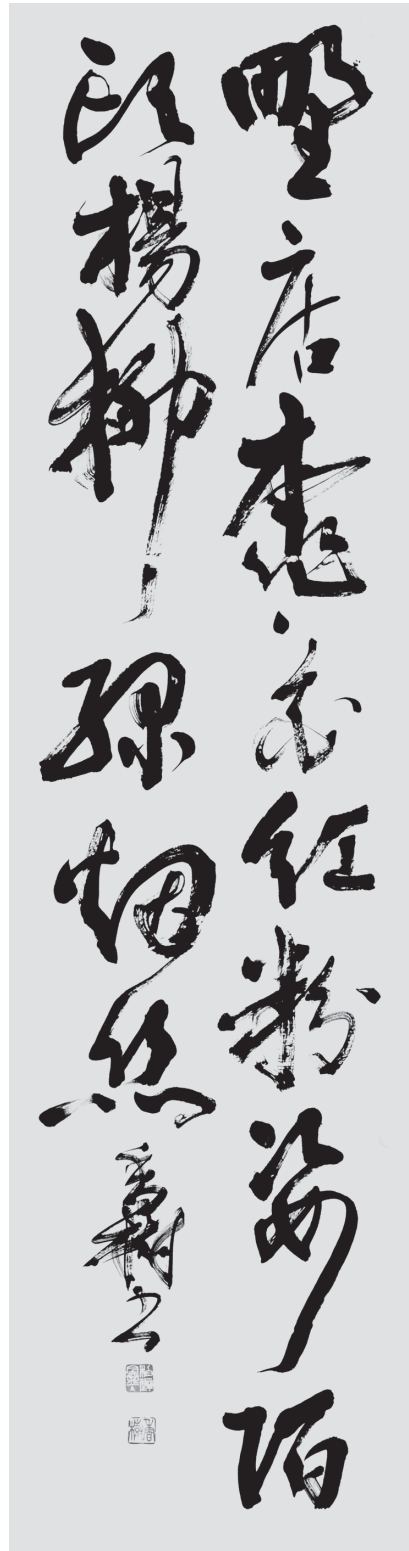 野店桃花紅粉姿陌
頭楊柳緑烟絲 書